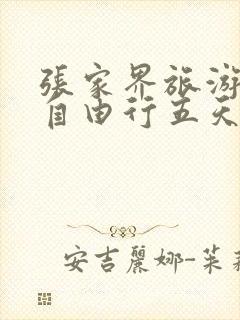 張家界旅游
自由行五天
安吉麗娜-茱莉